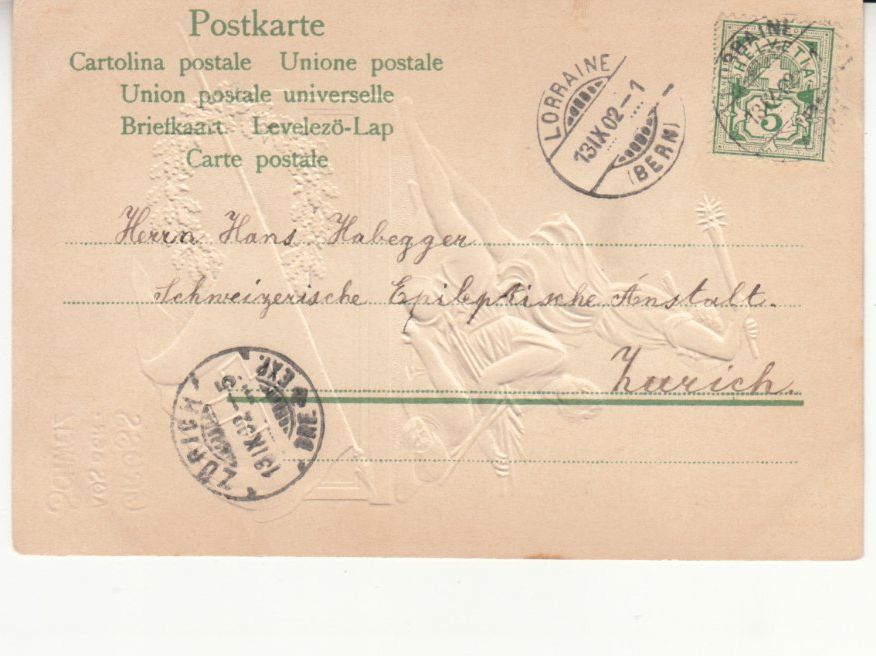 Postkarte
Cartolina postale Unione postale
Union postale universelle
Briefkaart. Levelezö-Lap
Carte postale
LORRAINE
13 IX 02 – 1
(BERN)
LORRAINE
HELVETIA
13 IX 02
5
Herrn Hans Habegger
Schweizerische Epileptische Anstalt.
Zürich.
ZÜRICH
13 IX 02
BRF. EXP.